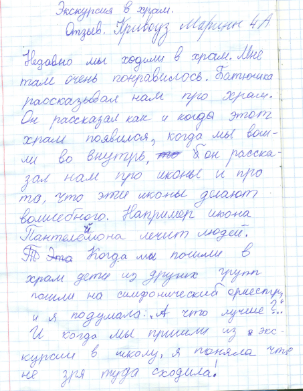 Экскурсия в храм.
Отзыв. Марины 4А
Недавно мы ходили в храм. Мне
там очень понравилось. Батюшка
рассказывал нам про храм.
Он рассказал как и когда этот
храм появился, когда мы вош-
ли во внутрь, он расска-
зал нам про иконы и про
то, что эти иконы делают
волшебного. Например икона
Пантелеймона лечит людей.
Когда мы пошли в
храм дети из других групп
пошли на симфонический оркестр,
и я подумала: А что лучше?..
И когда мы пришли из экс-
курсии в школу, я поняла что
не зря туда сходила!